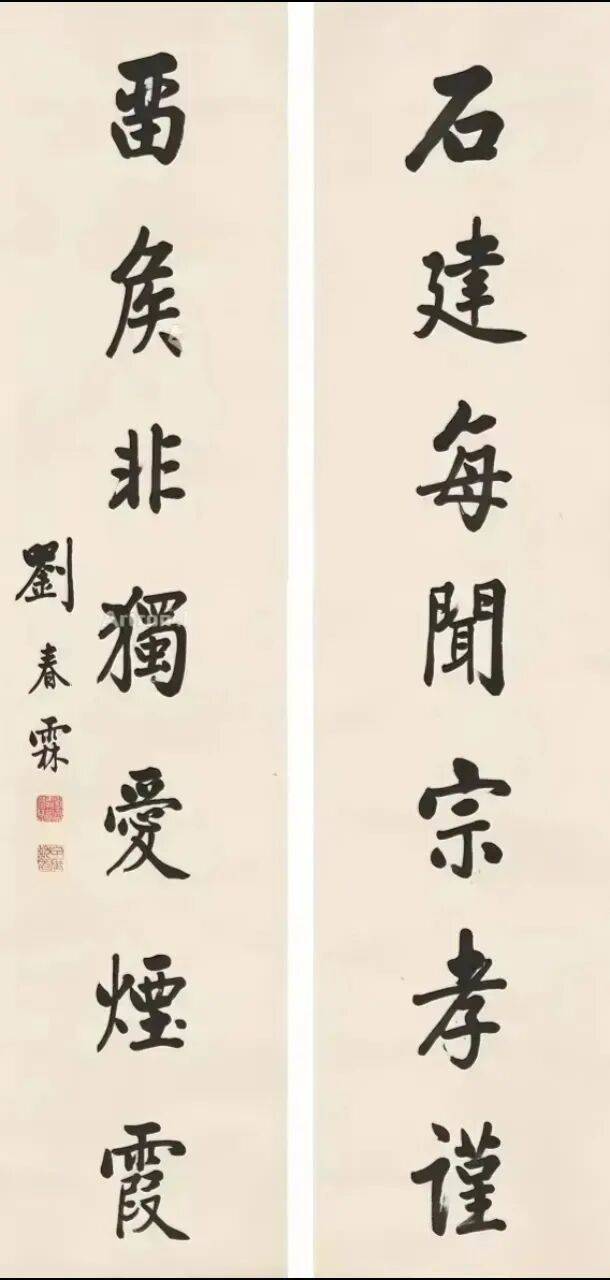 石建每聞宗孝謹
畱矦非獨愛煙霞
劉春霖